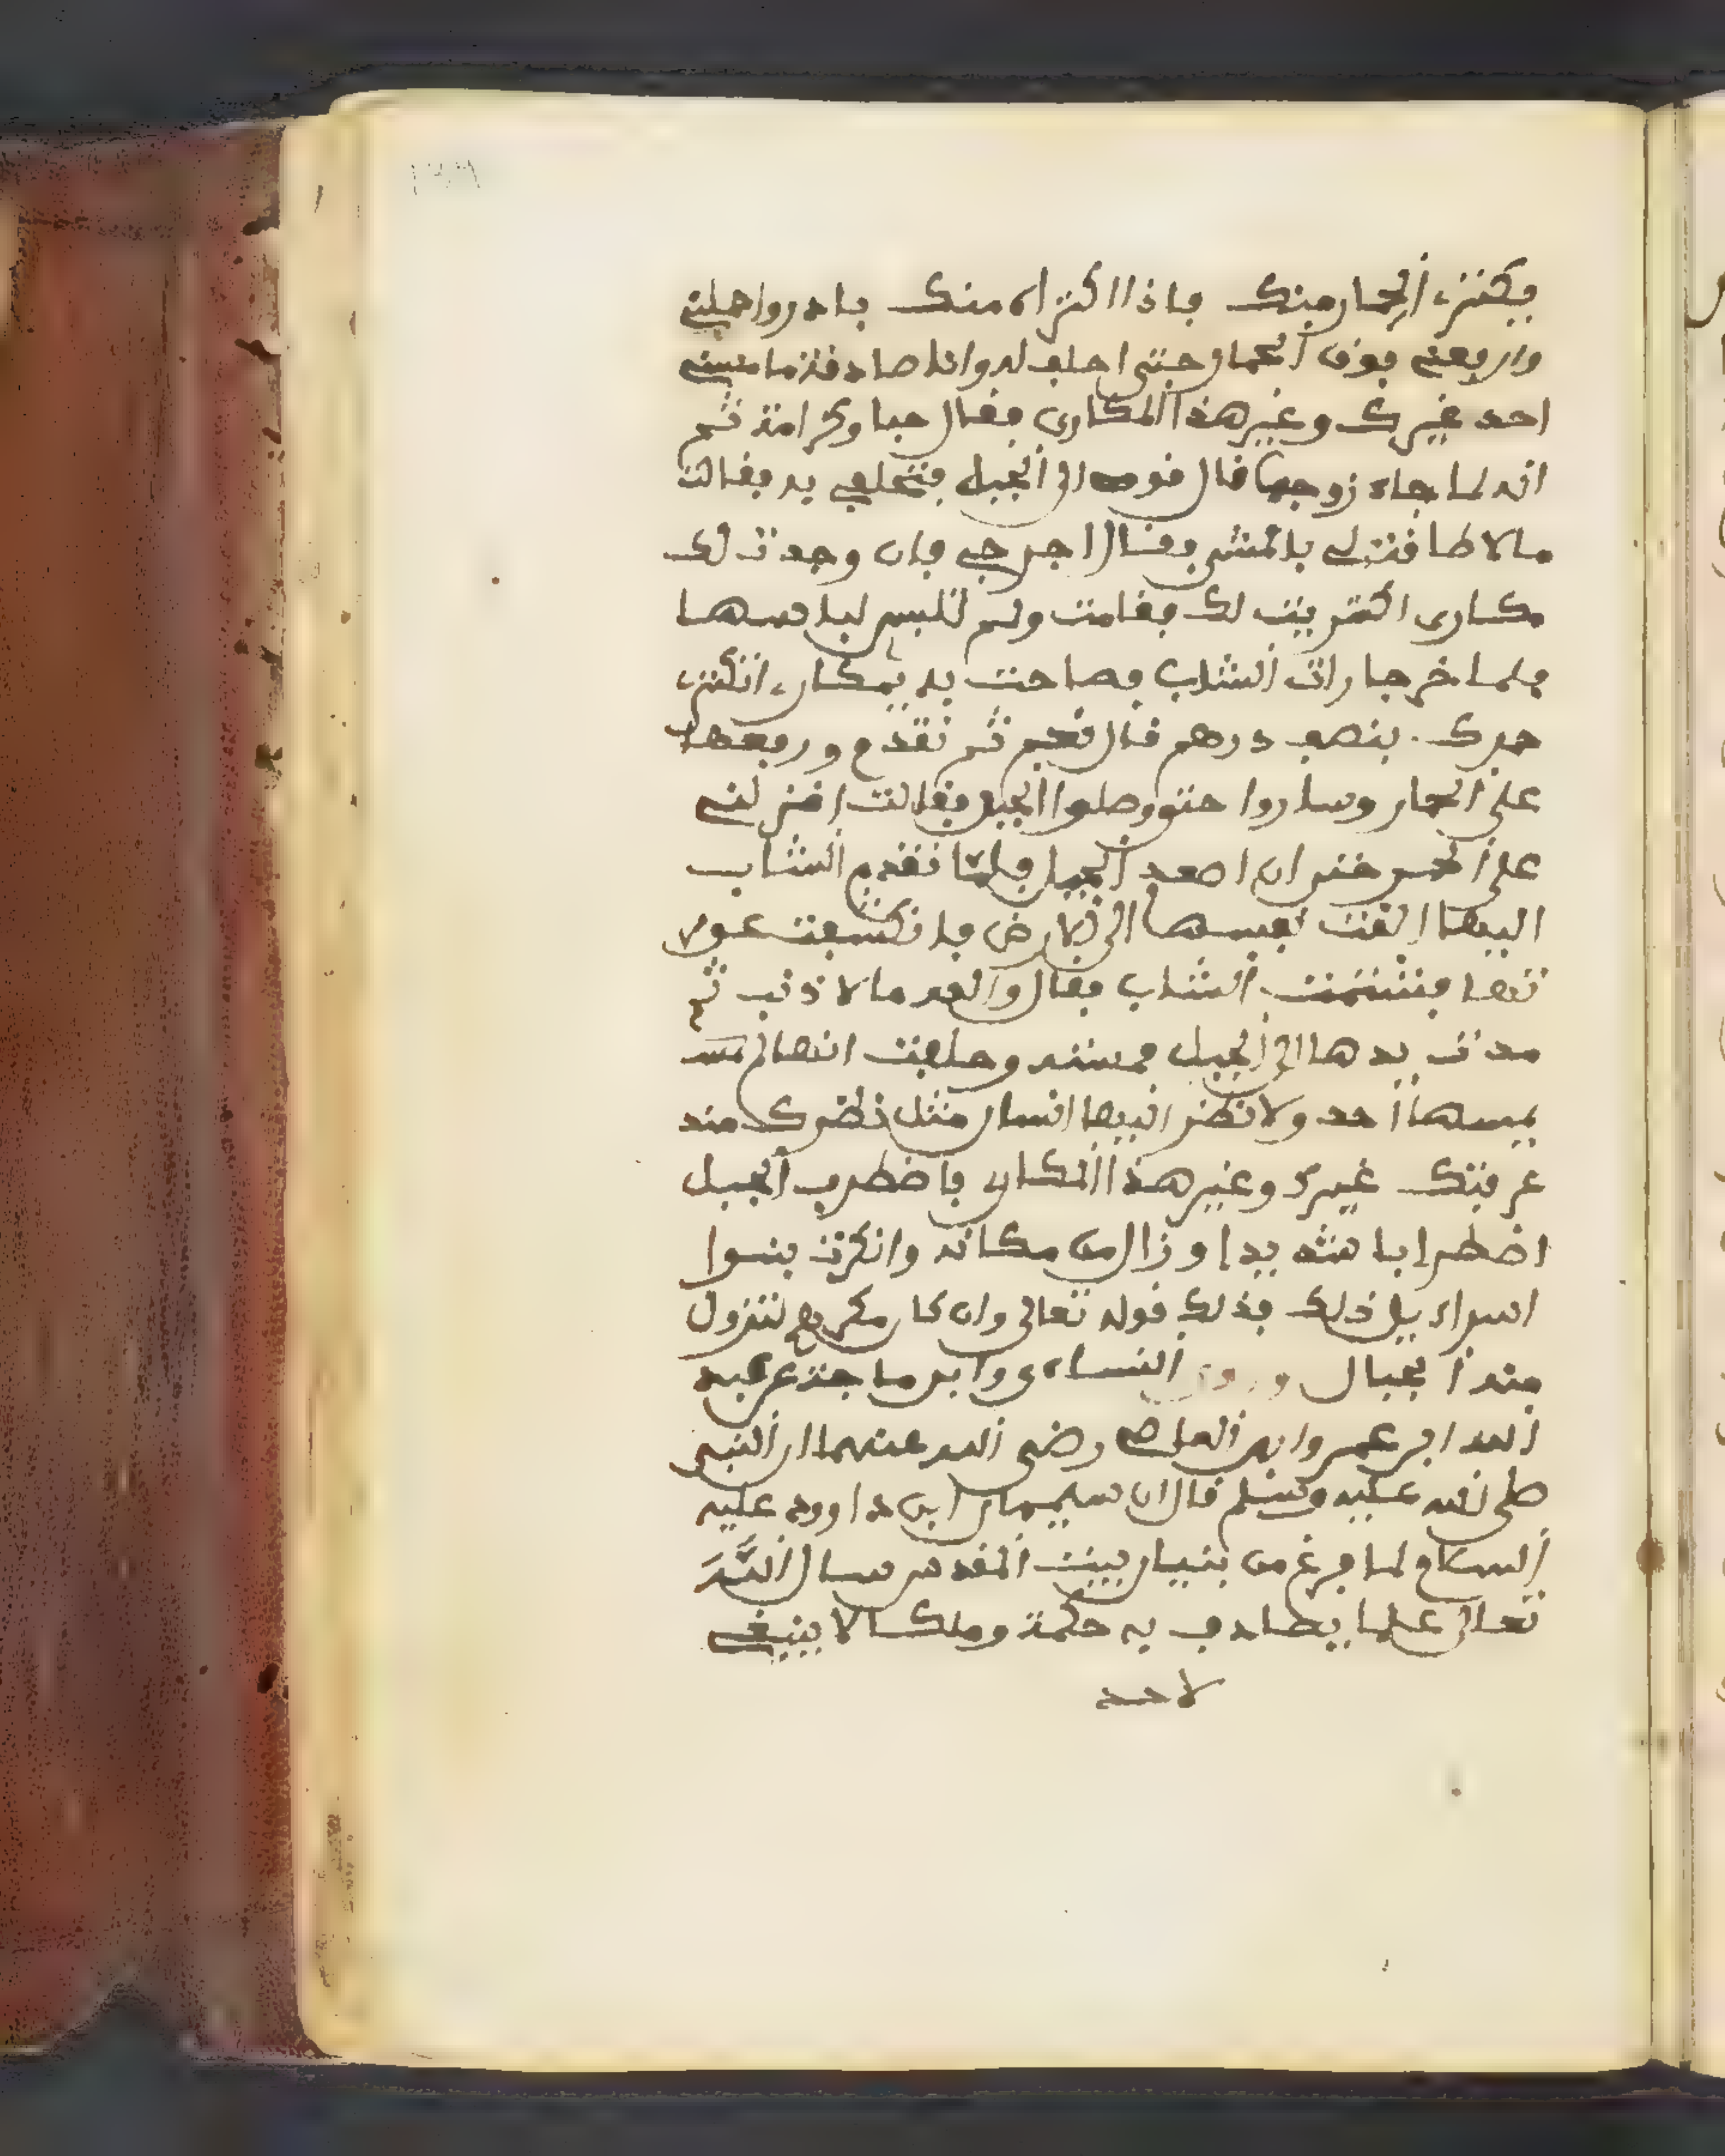 فيكتري الحمار منك فاذا اكتراه منك بادروا حملني
وارفعني فوق الحمار حتى احلف له وانا صادقة ما مسني
احد غيرك وغير هذا المكاري فقال حبا وكرامة ثم
انه لما جاء زوجها قال قومي الى الجبل فتحلفي به فقالت
مالا طاقة لي بالمشي فقال اخرجي فان وجدت لك
مكاري اكتريت لك فقامت ولم تلبس لباسها
فلما خرجا رات الشاب فصاحت به يمكاري اتكتري
حمرك بنصف درهم قال نعم ثم تقدم ورفعها
على الحمار وساروا حتى وصلوا الجبل فقالت انزلني
على الحمر حتى ان اصعد الجبل فلما تقدم الشاب
اليها القت نفسها الى الارض فانكشفت عور
تها فشتمت الشاب فقال والله مالا ذنب ثم
مدت يدها الى الجبل فمسته وحلفت انها لم يمس
يمسها احد ولا نظر اليها انسان مثل نظرك منذ
عرفتك غيرك وغير هذا المكاري فاضطرب الجبل
اضطرابا شديدا وزال من مكانه وانكرت بنوا
اسراءيل ذلك فذلك قوله تعالى وان كان مكرهم لتزول
منه الجبال وروى النساءي وابن ماجة عن عبد
الله ابن عمرو ابن العاصي رضي الله عنهما ان النبي
صلى الله عليه وسلم قال ان سليمان ابن داوود عليه
السلام لما فرغ من بنيان بيت المقدس سال الله
تعالى علما يصادف به حكمة وملكا لا ينبغي
لاحد